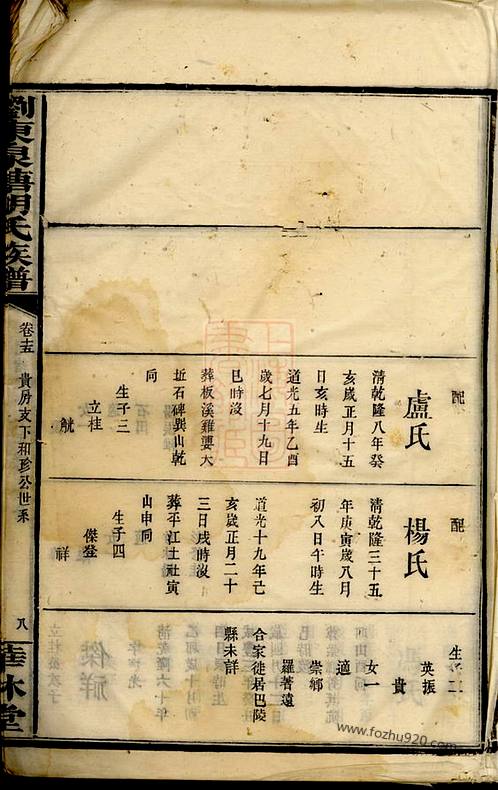 配
盧氏
清乾隆八年癸
亥歲正月十五
日亥時生
道光五年乙酉
歲七月十九日
巳時沒
葬板溪雞婆大
坵石碑巽山乾
同
生子三
立桂
觥
配
楊氏
清乾隆三十五
年庚寅歲八月
初八日午時生
道光十九年己
亥歲正月二十
三日戌時沒
葬平江土社寅
山申同
生子四
傑登
祥
生子二
英振
貴
女一
適
崇鄉
羅著遠
合家徙居巴陵
縣未詳
東泉塘胡氏族譜
卷十五
貴房支下和珍公世系
八
桂林堂
www.fozhu920.com